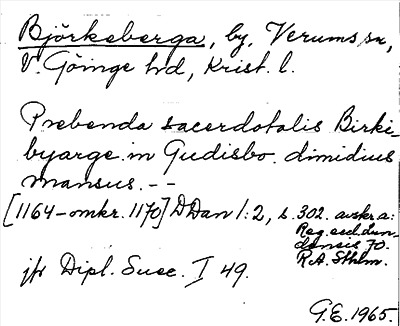 Björkeberga, by, Verums sn,
V. Göinge hd, Krist. l.
Prebenda sacerdotalis Birki-
byarge in Gudisbo dimidius
mansus. --
[1164-omkr. 1170] DDan 1:2, s. 302. avskr. a:
Reg. eccl. Lun-
densis 70.
R.A. Sthlm.
jfr Dipl. Suec. I 49.
G.E. 1965.